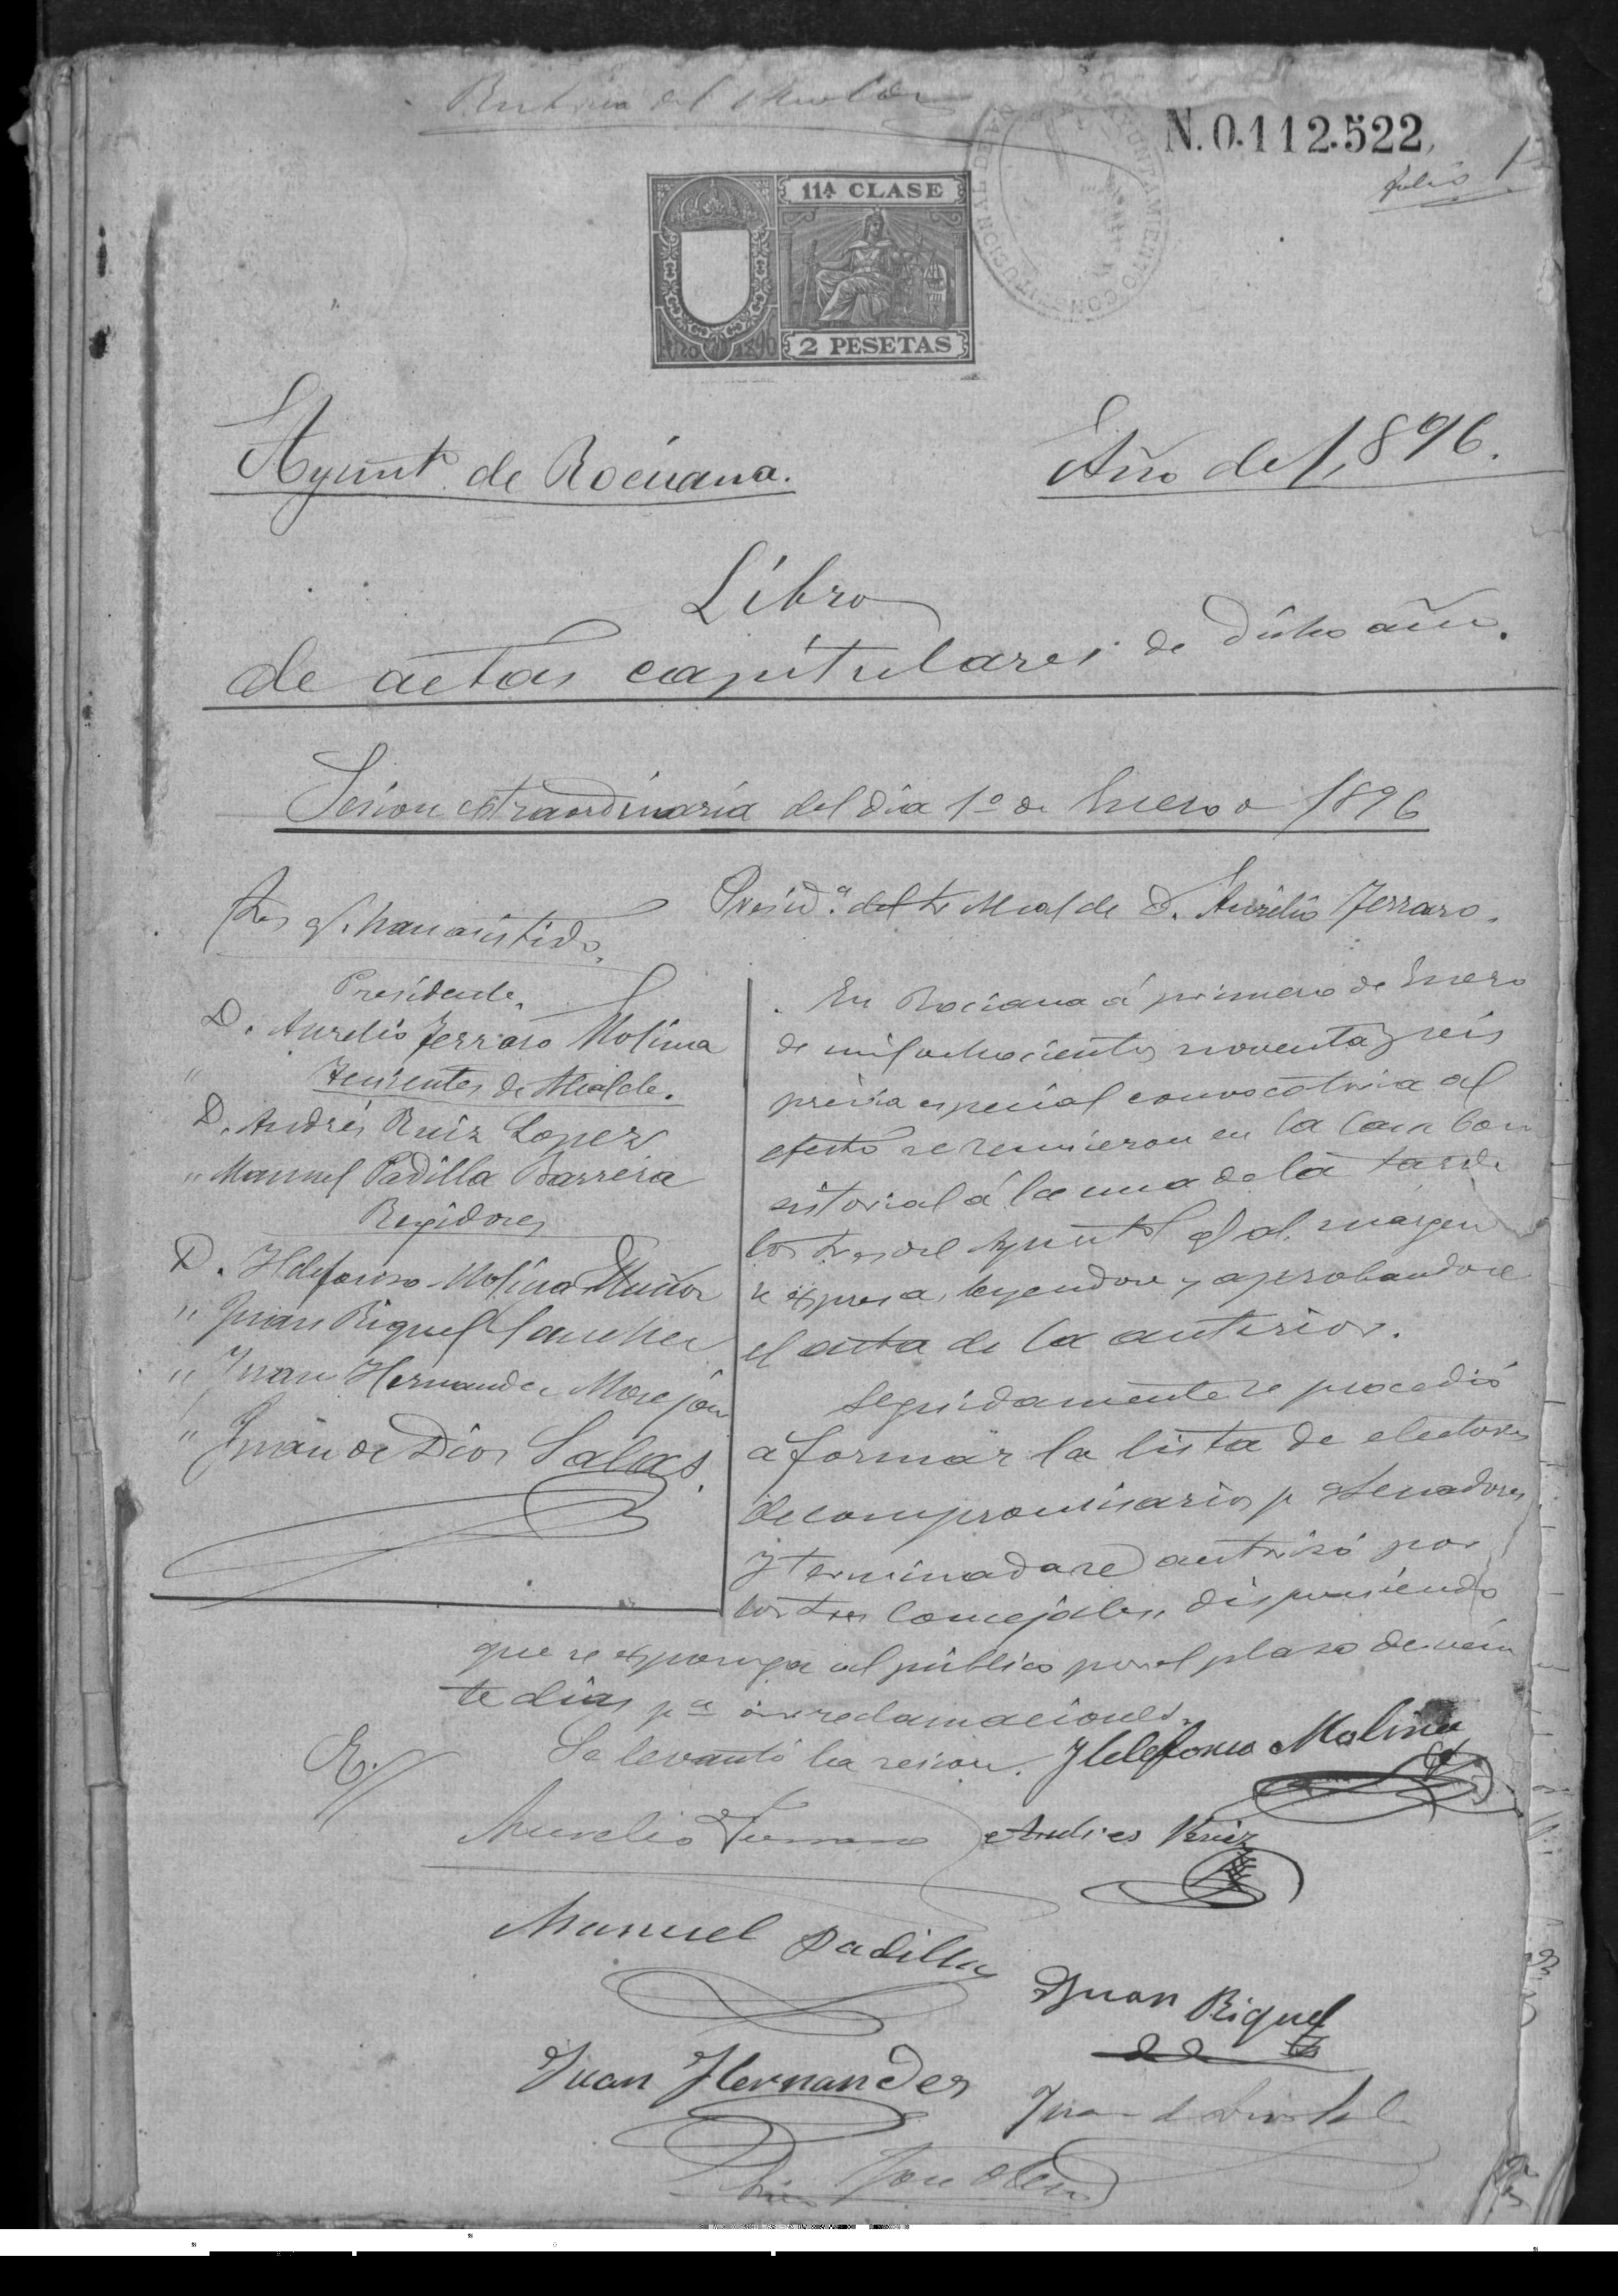 N.0.112.522
folio 1
AYUNTAMIENTO CONSTITUCIONAL DE
11ª CLASE
2 PESETAS
Ayunt.º de Rociana.
Año de 1,896.
Libro
de actas capitulares de dicho año.
Sesion estraordinaria del dia 1º de Enero de 1896
Presid.ª del Sr Alcalde D. Aurelio Ferraro.
Sres q. han asistido.
Presidente.
D. Aurelio Ferraro Molina
Tenientes de Alcalde.
D. Andrés Ruiz Lopez
" Manuel Padilla Barrera
Regidores
D. Ildefonso Molina Muñoz
" Juan Riquel Sanchez
" Juan Hernandez Morejon
" Juan de Dios Salas.
En Rociana á primero de Enero
de mil ochocientos noventa y seis
prévia especial convocatoria al
efecto se reunieron en la Casa Con
sistorial á la una de la tarde
los Sres del Ayuntº q al margen
se espresa, leyendose y aprobandose
el acta de la anterior.
Seguidamente se procedió
a formar la lista de electores
de compromisarios pª Senadores
y terminada se autorisó por
los Sres Concejales, disponiendo
que se esponga al público por el plazo de vein
te dias pª oir reclamaciones.
Se levantó la sesion.
Ildefonso Molina
Aurelio Ferraro
Andres Ruiz
Manuel Padilla
Juan Riquel
Juan Hernandez
Juan de Dios Sal